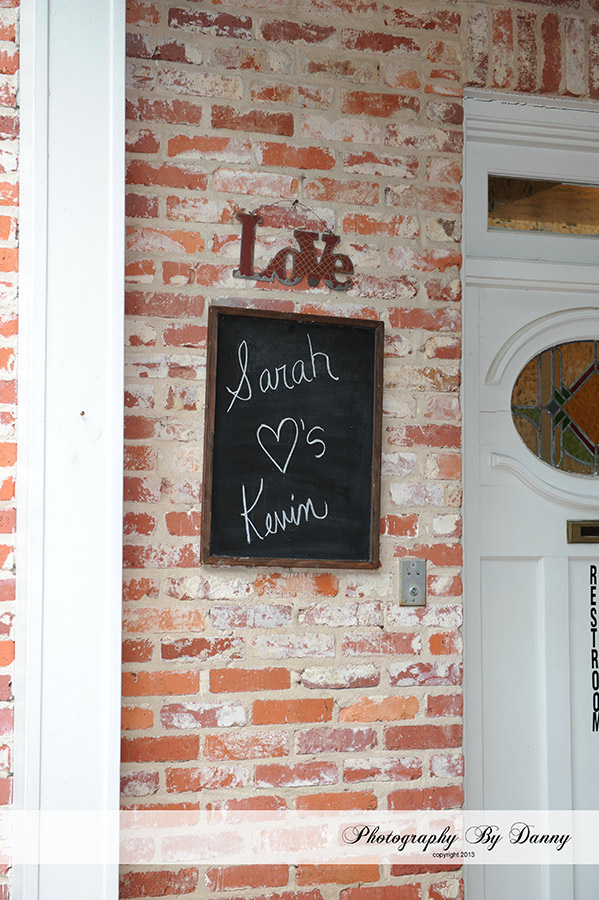 Love
Sarah
♡'s
Kevin
RESTROOM
Photography By Danny
copyright 2013